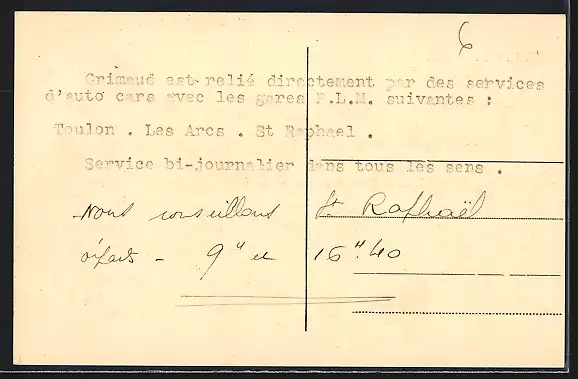 6
Grimaud est relié directement par des services
d'auto cars avec les gares P.L.M. suivantes :
Toulon . Les Arcs . St Raphael .
Service bi-journalier dans tous les sens .
Nous conseillons St Raphaël
départs - 9 H et 16 H. 40